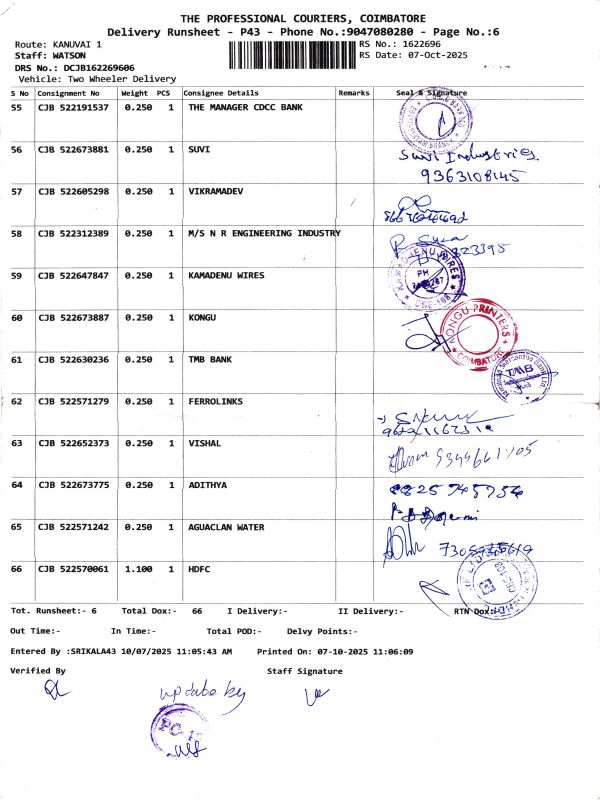 THE PROFESSIONAL COURIERS, COIMBATORE
Delivery Runsheet - P43 - Phone No.:9047080280 - Page No.:6
Route: KANUVAI 1
RS No.: 1622696
Staff: WATSON
RS Date: 07-Oct-2025
DRS No.: DCJB162269606
Vehicle: Two Wheeler Delivery
S No Consignment No Weight PCS Consignee Details Remarks Seal & Signature
55 CJB 522191537 0.250 1 THE MANAGER CDCC BANK
56 CJB 522673881 0.250 1 SUVI
Suvi Industries
9363108145
57 CJB 522605298 0.250 1 VIKRAMADEV
58 CJB 522312389 0.250 1 M/S N R ENGINEERING INDUSTRY
59 CJB 522647847 0.250 1 KAMADENU WIRES
60 CJB 522673887 0.250 1 KONGU
KONGU PRINTERS
COIMBATORE
61 CJB 522630236 0.250 1 TMB BANK
TMB
62 CJB 522571279 0.250 1 FERROLINKS
63 CJB 522652373 0.250 1 VISHAL
64 CJB 522673775 0.250 1 ADITHYA
8825745756
65 CJB 522571242 0.250 1 AGUACLAN WATER
66 CJB 522570061 1.100 1 HDFC
Tot. Runsheet:- 6 Total Dox:- 66 I Delivery:- II Delivery:- RTN Dox:-
Out Time:- In Time:- Total POD:- Delvy Points:-
Entered By :SRIKALA43 10/07/2025 11:05:43 AM Printed On: 07-10-2025 11:06:09
Verified By Staff Signature
update by